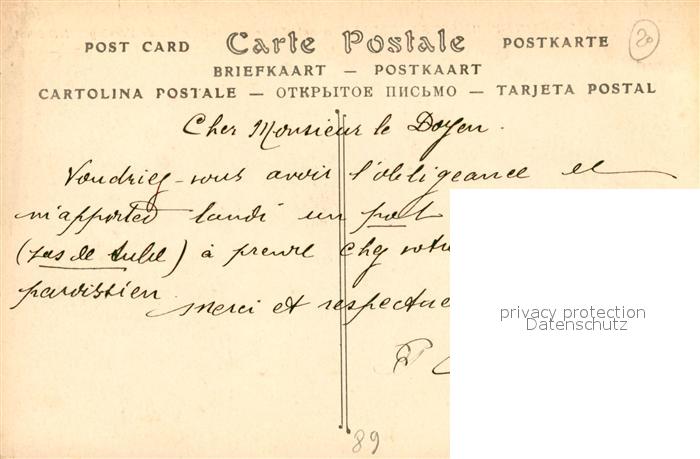 20
POST CARD Carte Postale POSTKARTE
BRIEFKAART — POSTKAART
CARTOLINA POSTALE — ОТКРЫТОЕ ПИСЬМО — TARJETA POSTAL
Cher Monsieur le Doyen.
Voudriez-vous avoir l'obligeance de
m'apporter lundi un pot
(pas de tube) à prendre chez votre
paroissien
Merci et respectue
privacy protection
Datenschutz
89